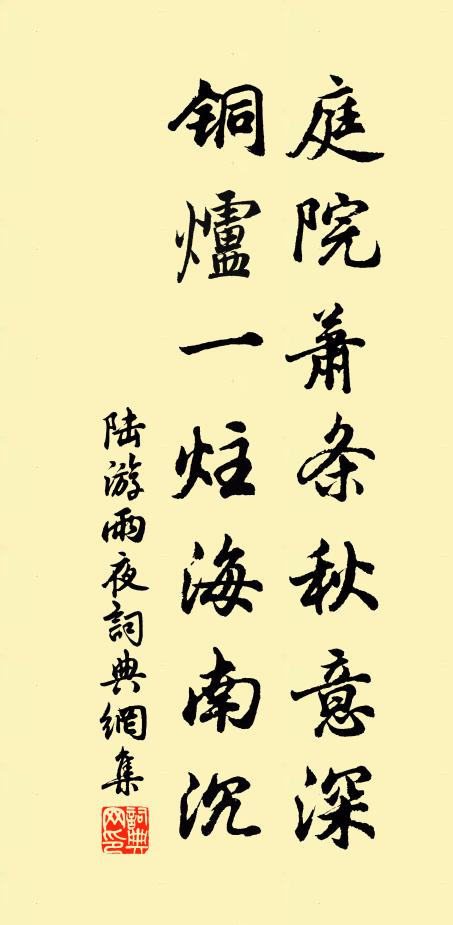 庭院萧条秋意深
铜爐一炷海南沉
陆游雨夜詞典網集
詞典網印